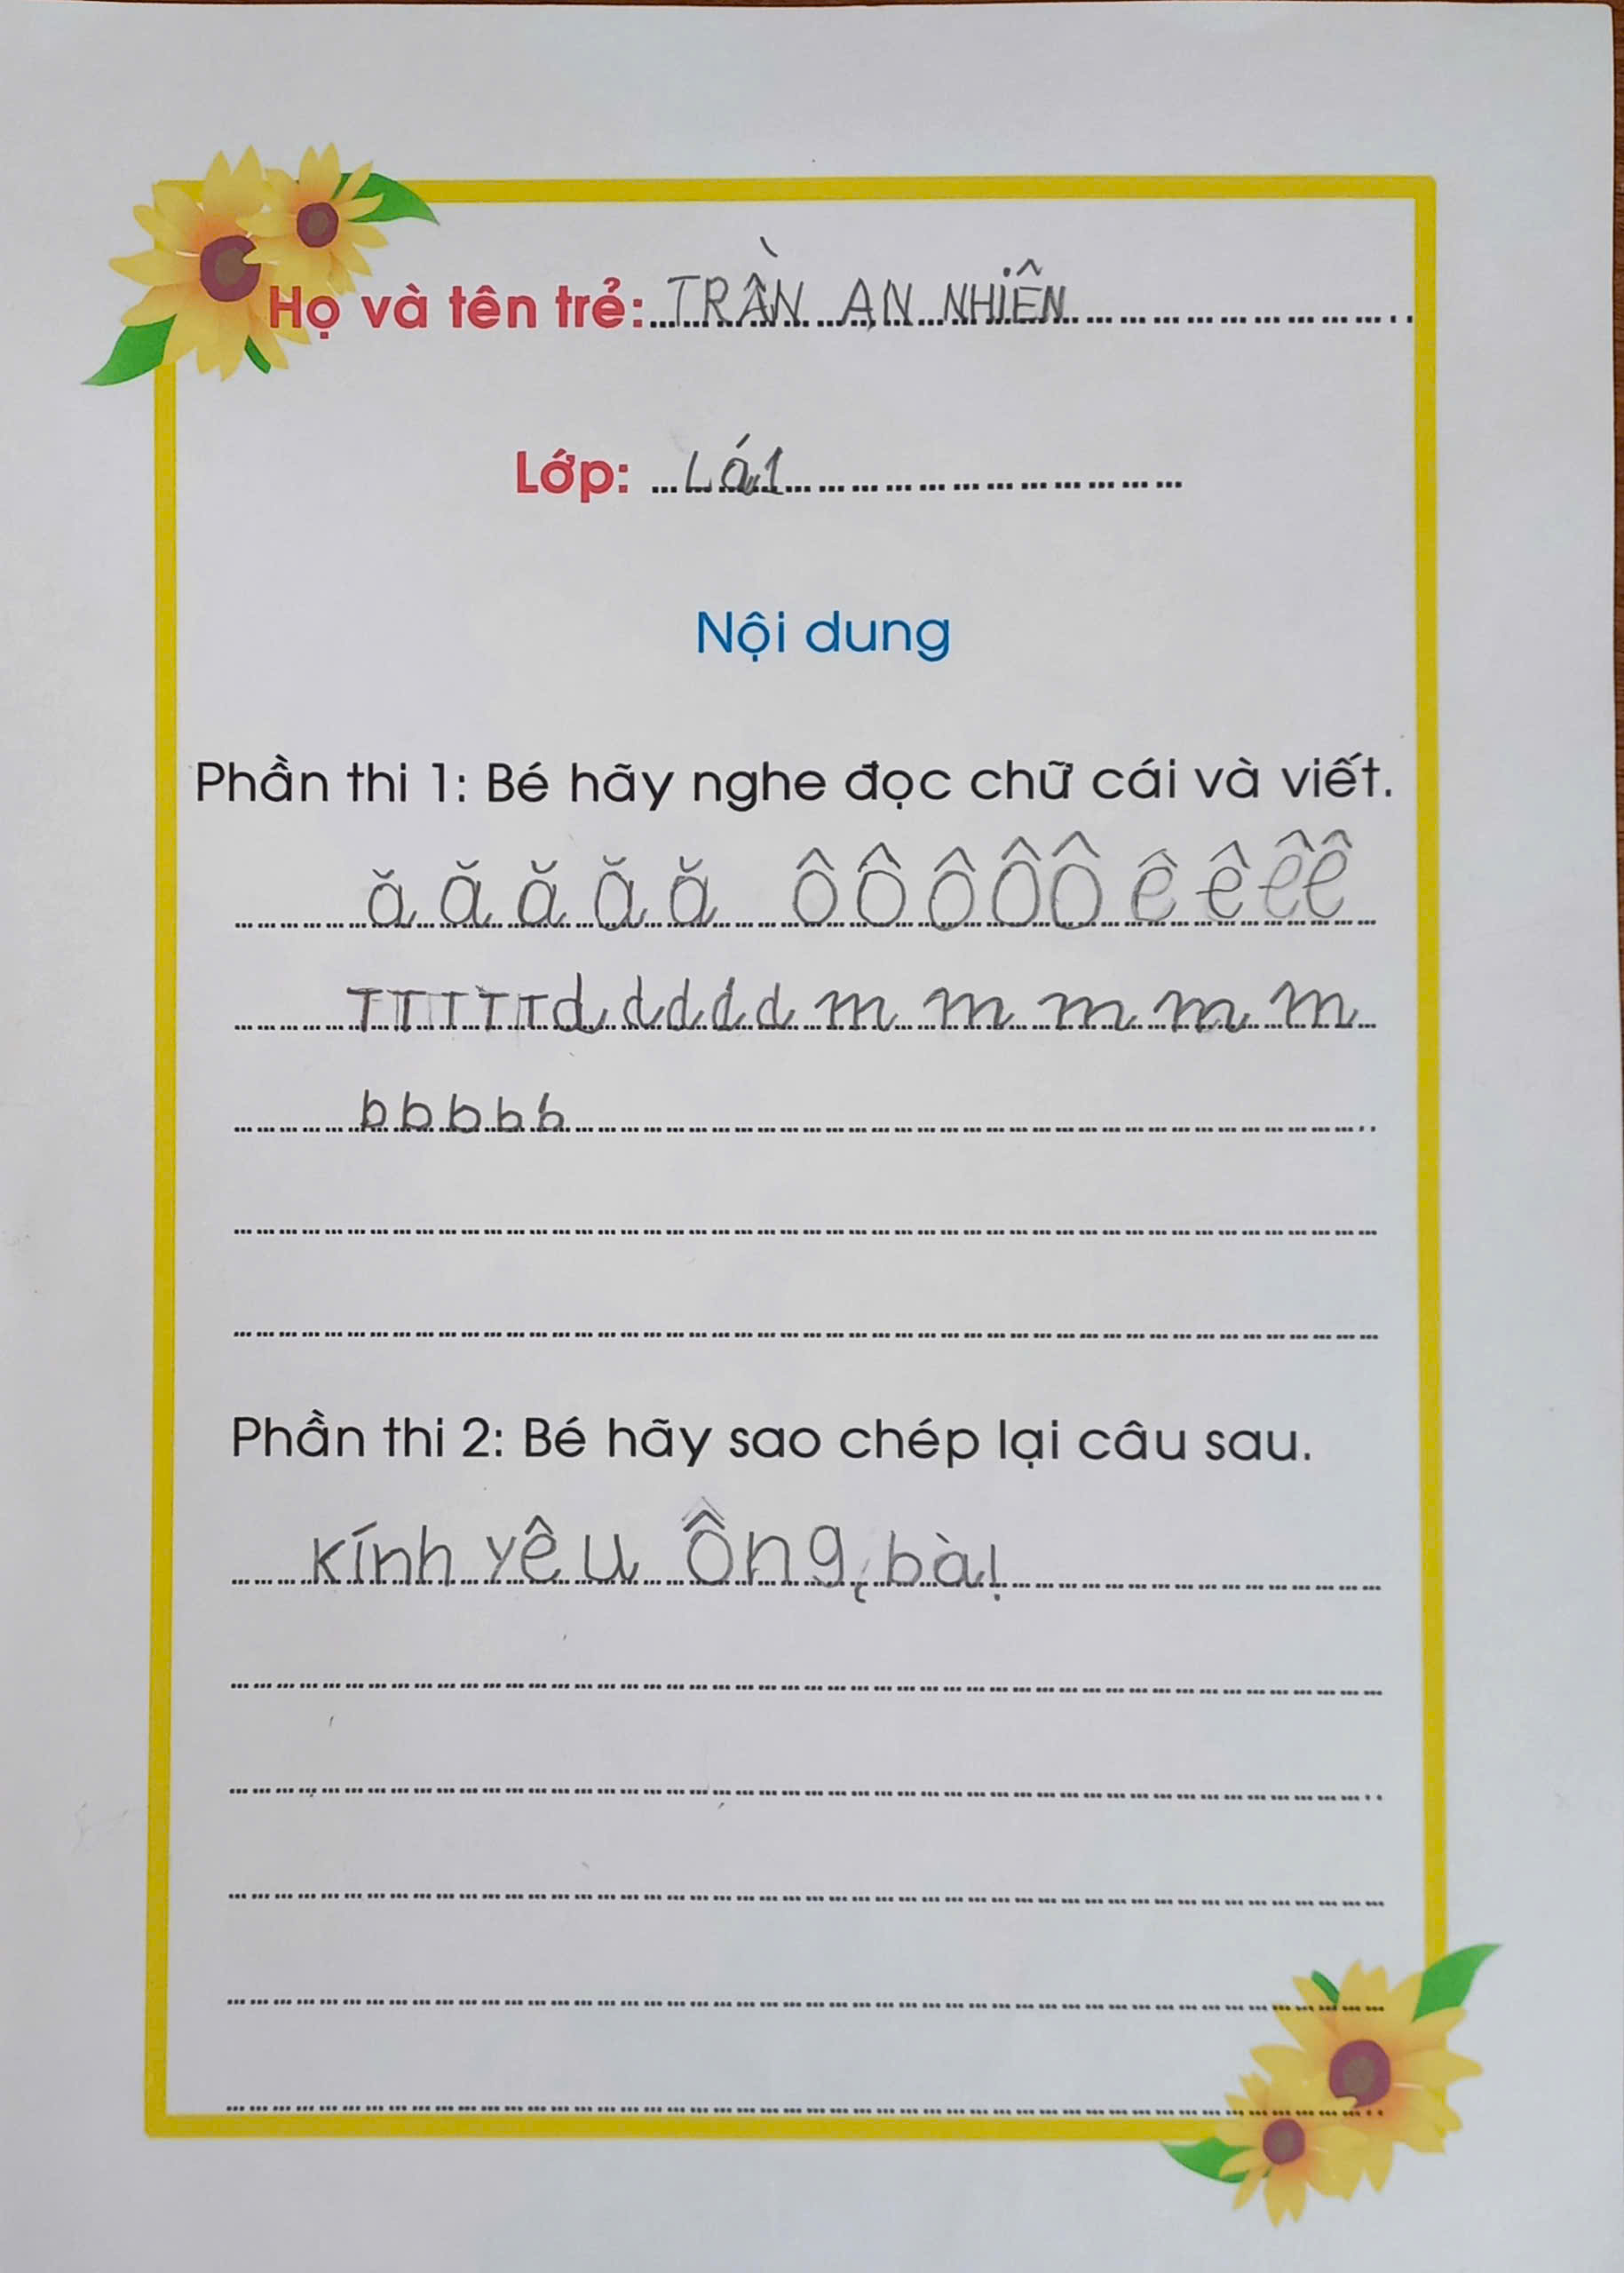 Họ và tên trẻ: TRẦN AN NHIÊN
Lớp: Lá1
Nội dung
Phần thi 1: Bé hãy nghe đọc chữ cái và viết.
ă ă ă ă ă ô ô ô ô ô ê ê ê ê
T T T T T d d d d d m m m m m
b b b b b
Phần thi 2: Bé hãy sao chép lại câu sau.
Kính yêu Ông, bà!